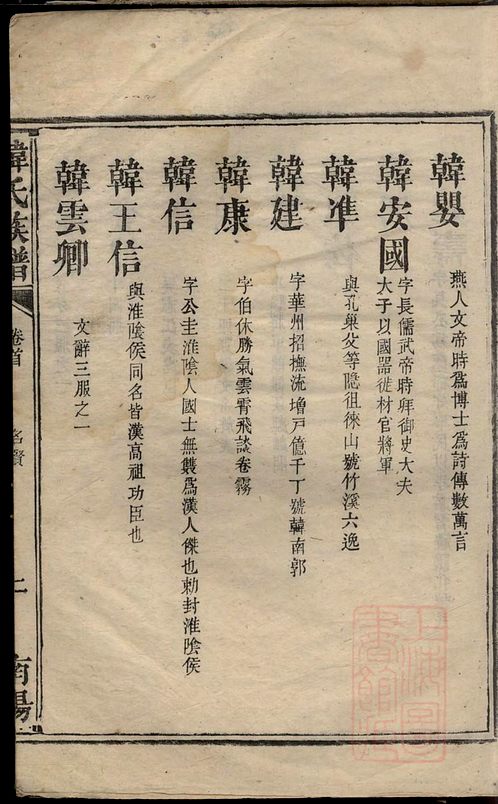 韓嬰
燕人文帝時爲博士爲詩傳數萬言
韓安國
字長儒武帝時拜御史大夫
大子以國器徙材官將軍
韓準
與孔巢父等隱徂徠山號竹溪六逸
韓建
字華州招撫流增戸億千丁號韓南郭
韓康
字伯休勝氣雲霄飛談卷霧
韓信
字公圭淮陰人國士無雙爲漢人傑也勅封淮陰侯
韓王信
與淮陰侯同名皆漢高祖功臣也
韓雲卿
文辭三服之一
韓氏族譜
卷首
名賢
南陽
上海圖書館藏